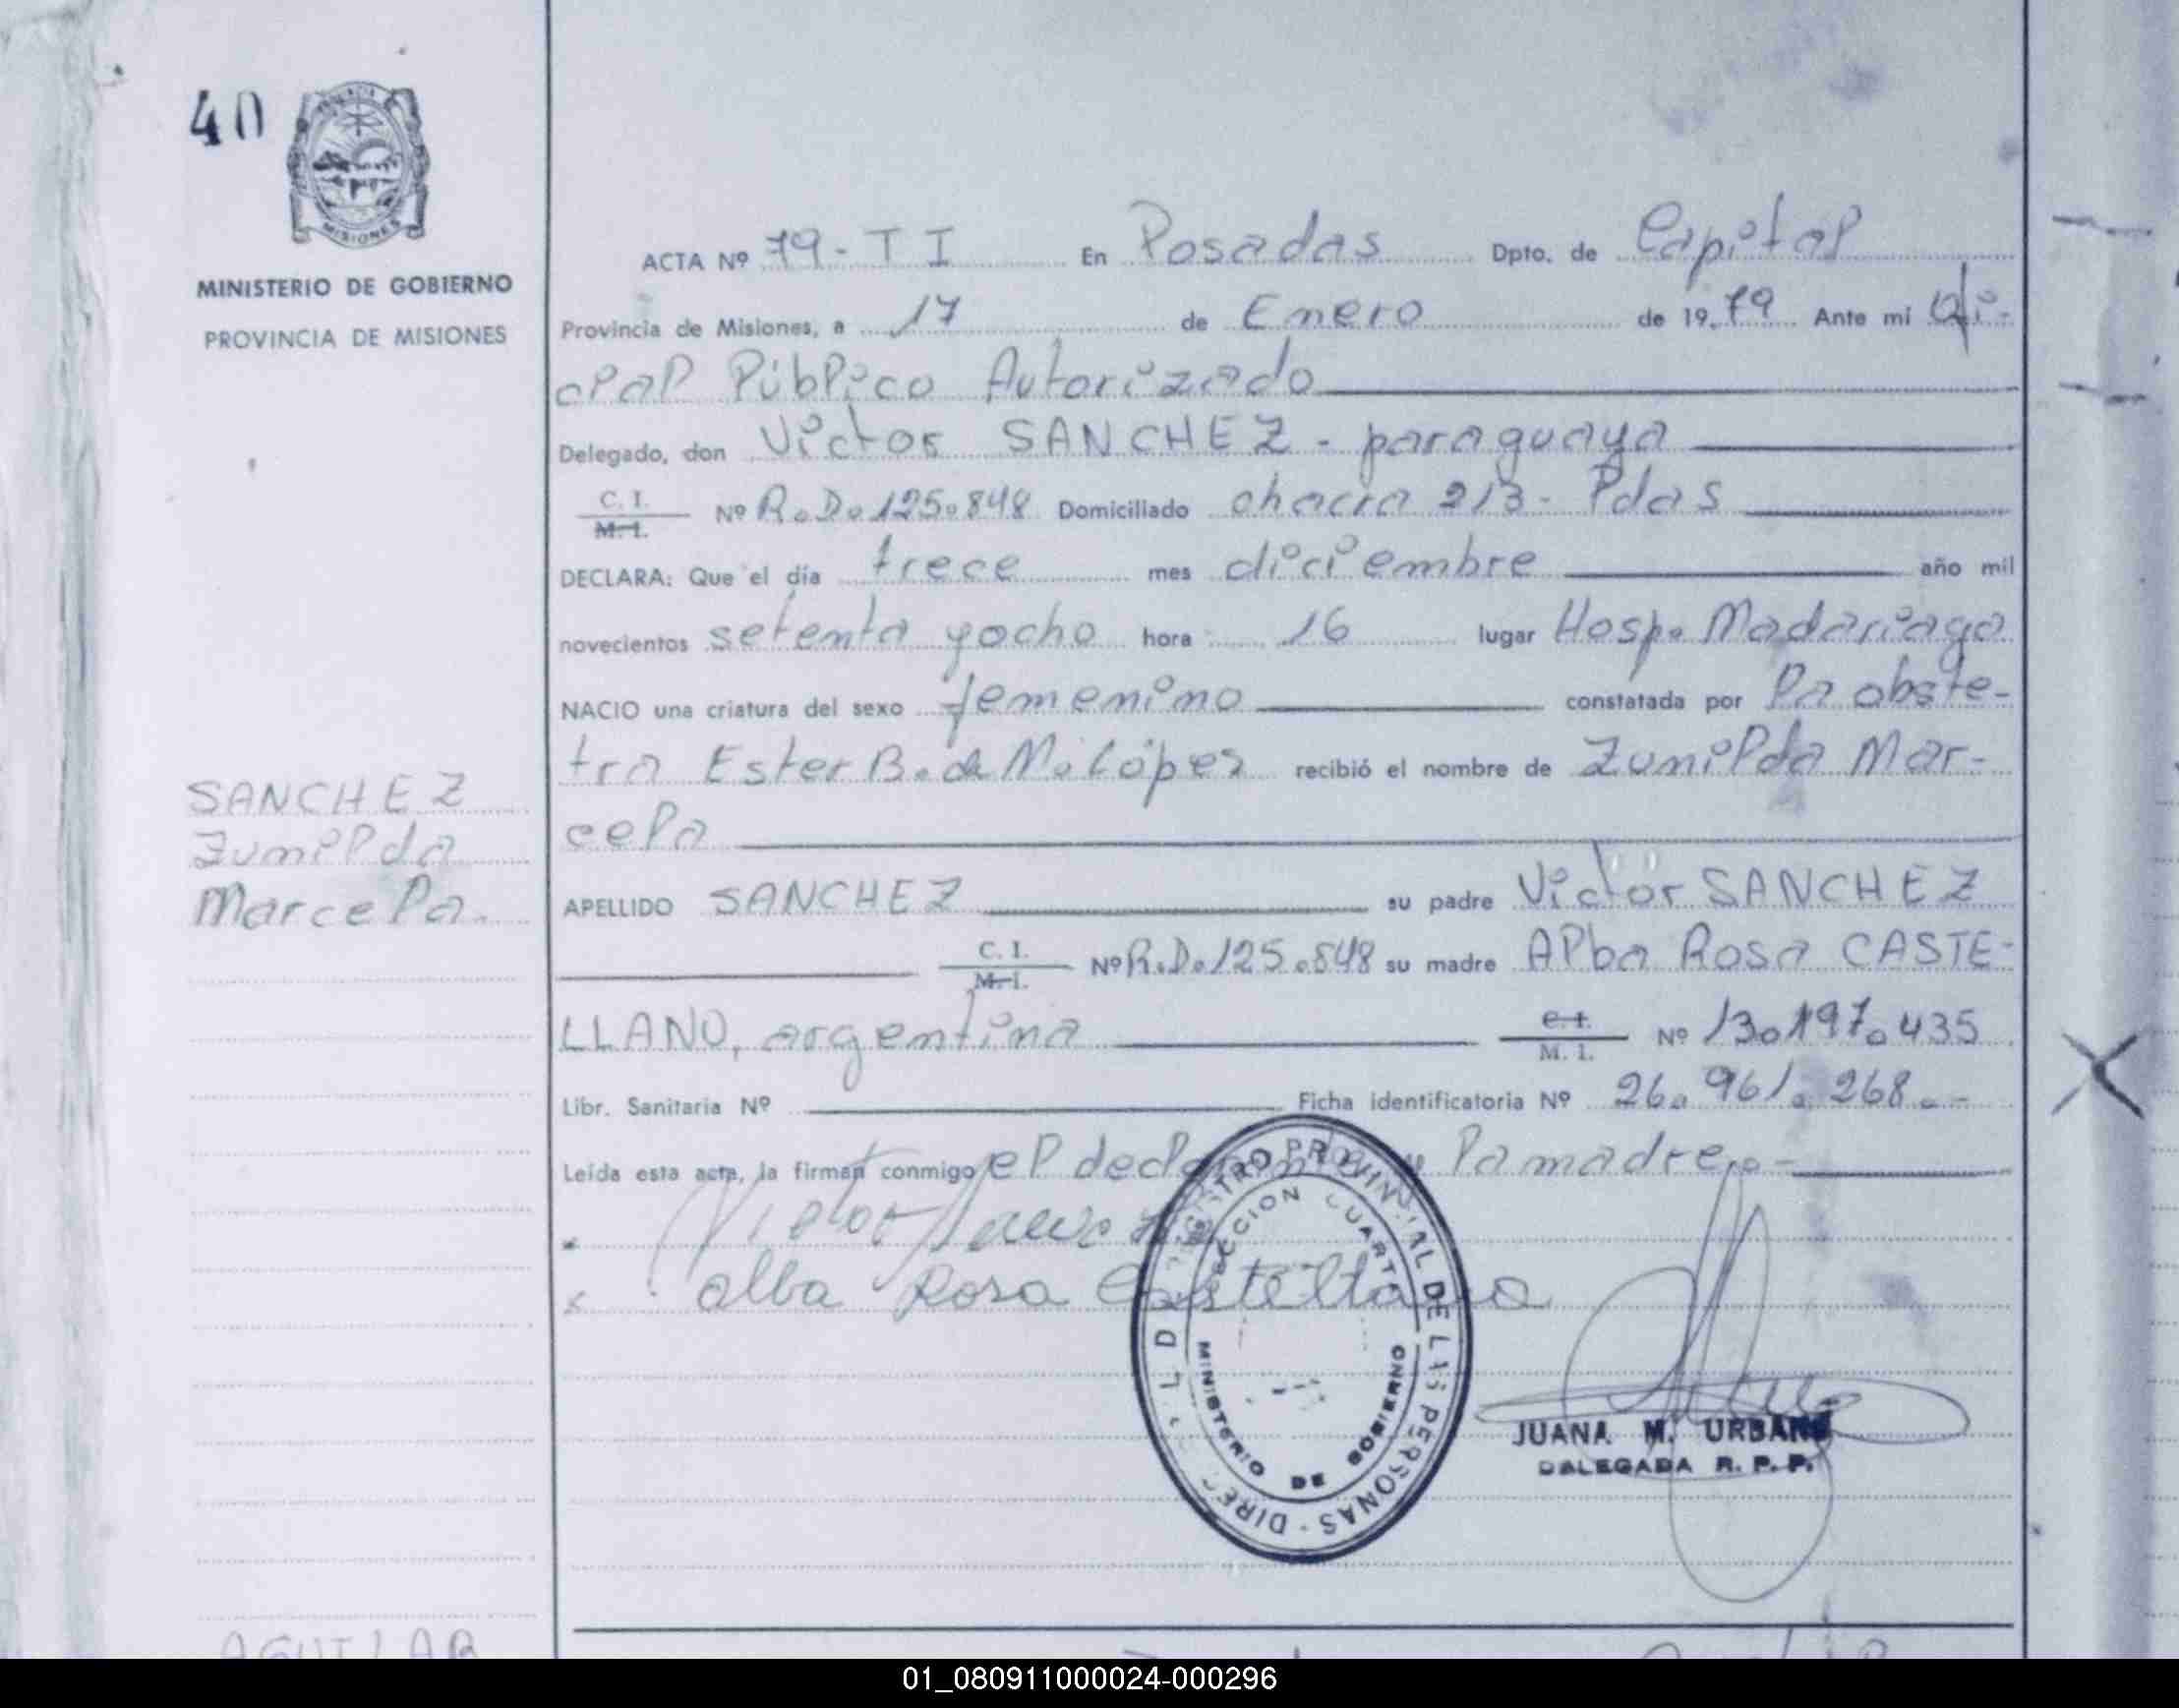 40
MISIONES
MINISTERIO DE GOBIERNO
PROVINCIA DE MISIONES
ACTA Nº 79-TI En Posadas Dpto. de Capital
Provincia de Misiones, a 17 de Enero de 1979 Ante mi Ofi-
cial Público Autorizado
Delegado, don Victor SANCHEZ - paraguaya
C. I.
M. I. Nº R.D.125.848 Domiciliado chacra 213- Pdas
DECLARA: Que el día trece mes diciembre año mil
novecientos setenta yocho hora 16 lugar Hosp. Madariaga
NACIO una criatura del sexo femenino constatada por la obste-
tra Ester B. de M. López recibió el nombre de Zunilda Mar-
cela
APELLIDO SANCHEZ su padre Victor SANCHEZ
C. I.
M. I. Nº R.D.125.848 su madre Alba Rosa CASTE-
LLANO, argentina C. I.
M. I. Nº 13.197.435
Libr. Sanitaria Nº Ficha identificatoria Nº 26.961.268.-
Leída esta acta, la firman conmigo el declarante y la madre.-
SANCHEZ
Zunilda
Marcela.
Victor
alba Rosa Castellano
REGISTRO PROVINCIAL DE LAS PERSONAS - DIREC
SECCION CUARTA
MINISTERIO DE GOBIERNO
JUANA M. URBANO
DELEGADA R. P. P.
AGUILAR
01_080911000024-000296